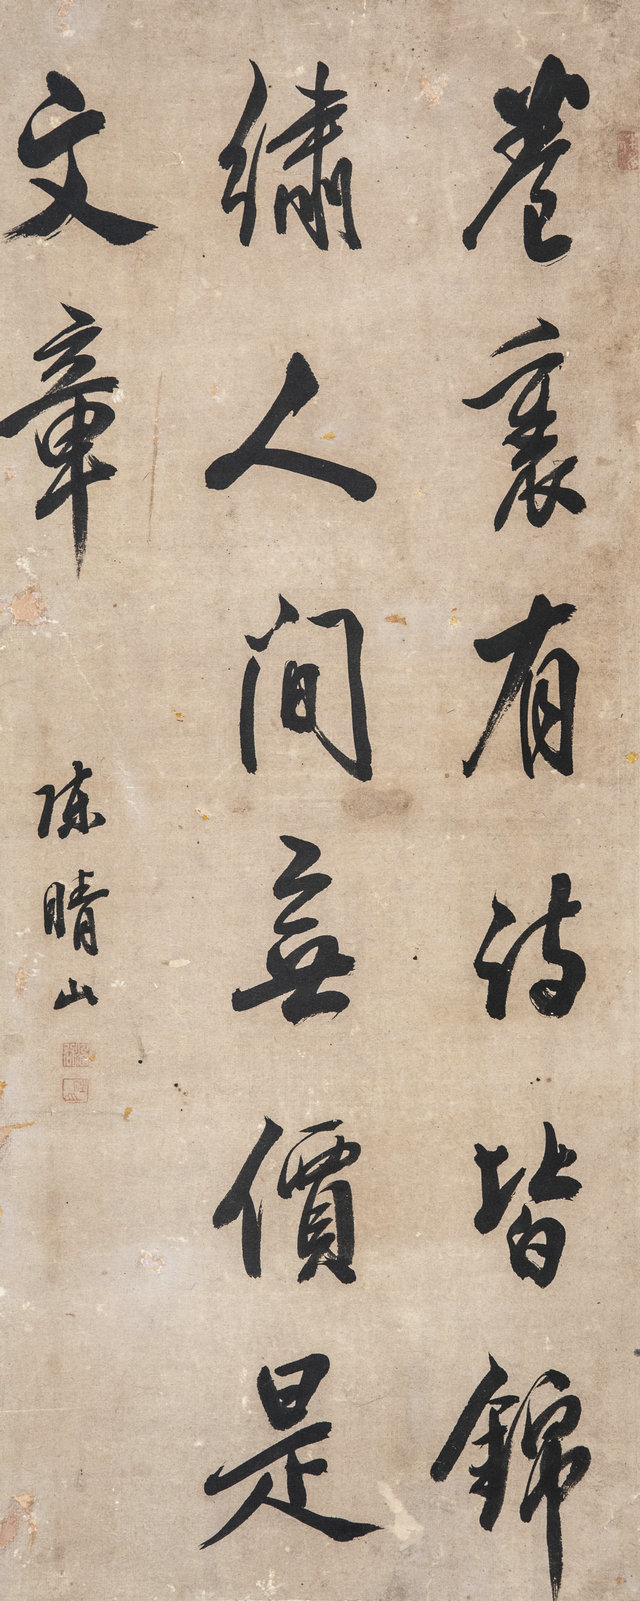 卷裏有詩皆錦
繡人間無價是
文章
陳晴山